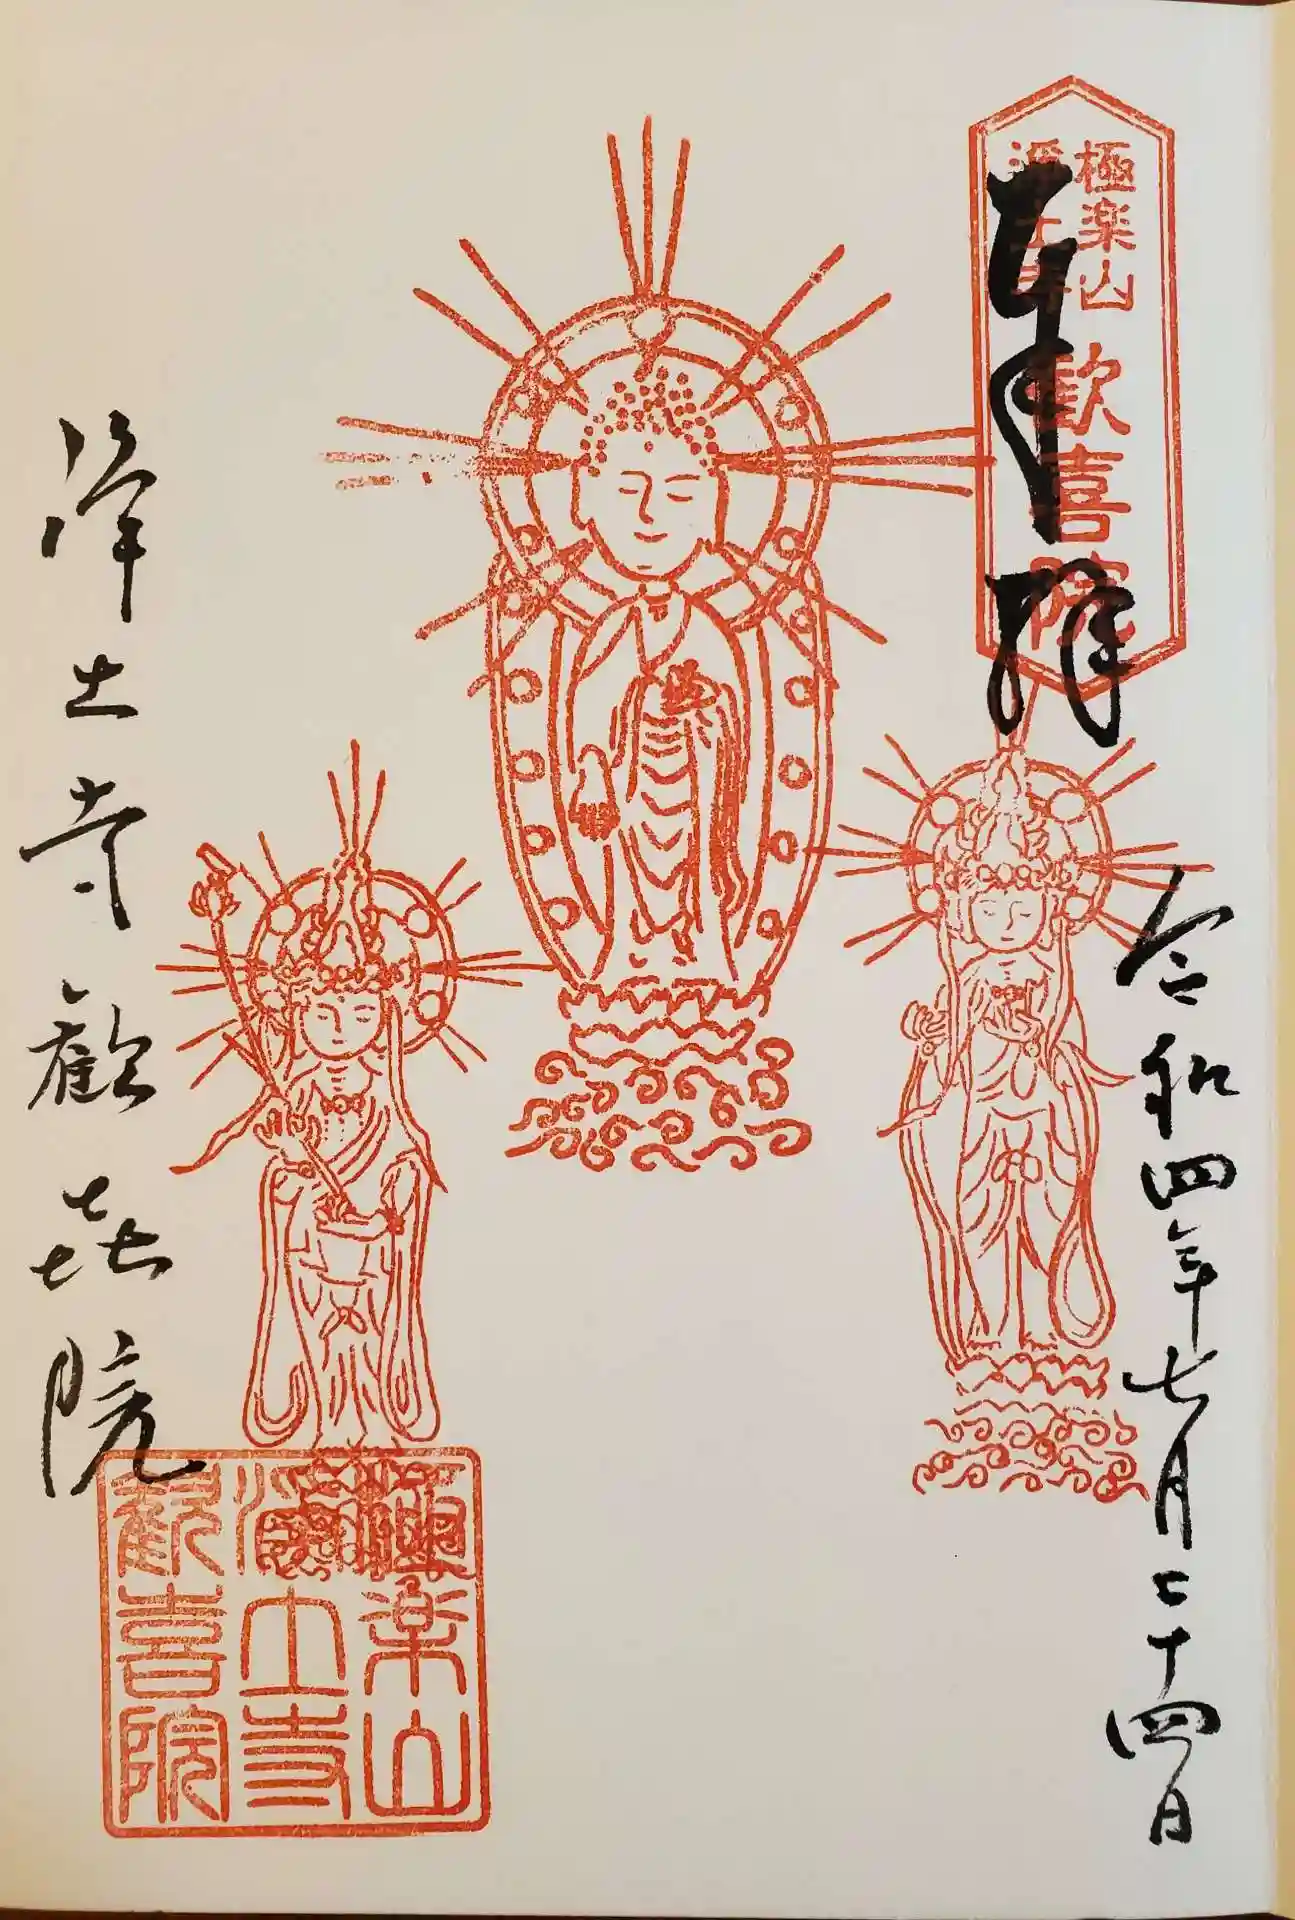 極楽山
浄土寺
歓喜院
奉拝
令和四年七月二十四日
浄土寺歓㐂院
極楽山
浄土寺
歓喜院